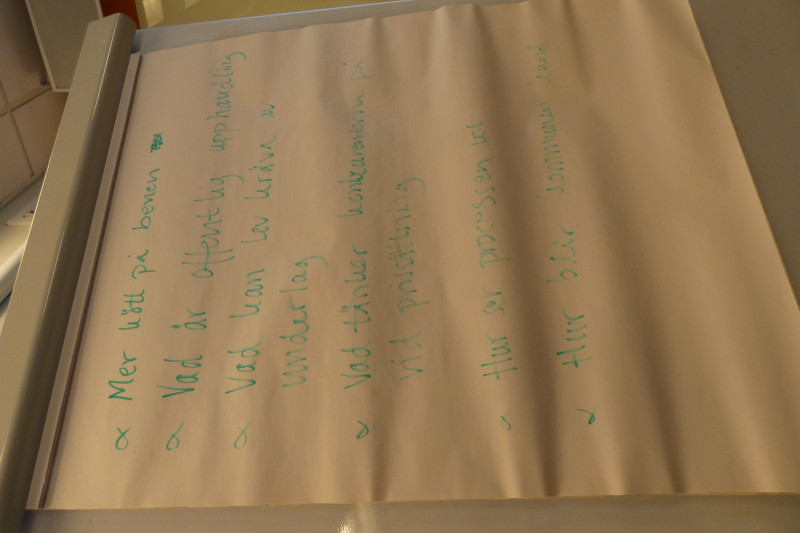 α Mer kött på benen
α Vad är offentlig upphandling
α Vad kan lov kräva av
underlag
α Vad tänker konkurrenterna på
vid prissättning
α Hur ser processen ut
α Hur blir kommunen kund